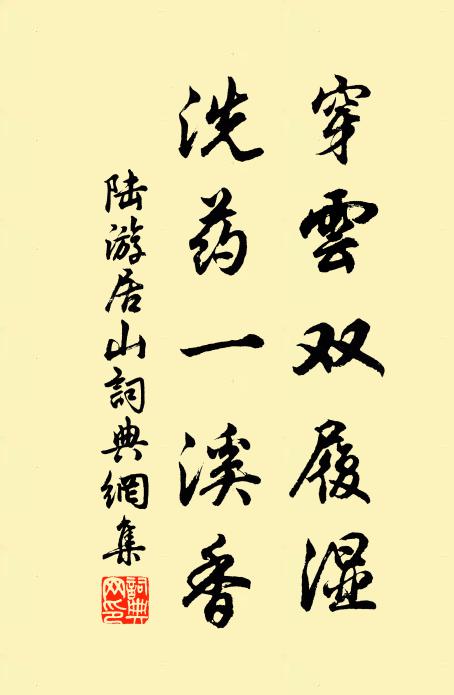 穿雲双履湿
洗药一溪香
陆游居山詞典網集
詞典
网印